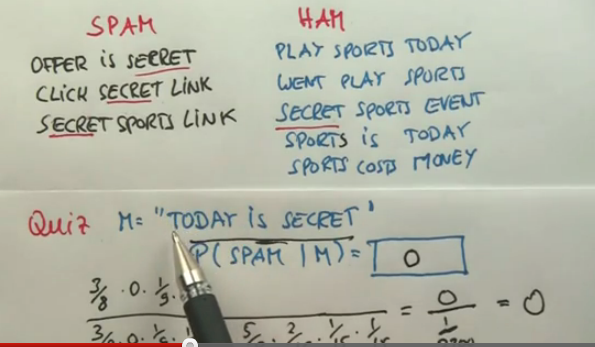 SPAM
HAM
OFFER is SECRET
CLICK SECRET LINK
SECRET SPORTS LINK
PLAY SPORTS TODAY
WENT PLAY SPORTS
SECRET SPORTS EVENT
SPORTS is TODAY
SPORTS COSTS MONEY
Quiz M= "TODAY is SECRET"
P(SPAM | M) = 0
3/8 · 0 · 1/9
= 0 / 1 = 0